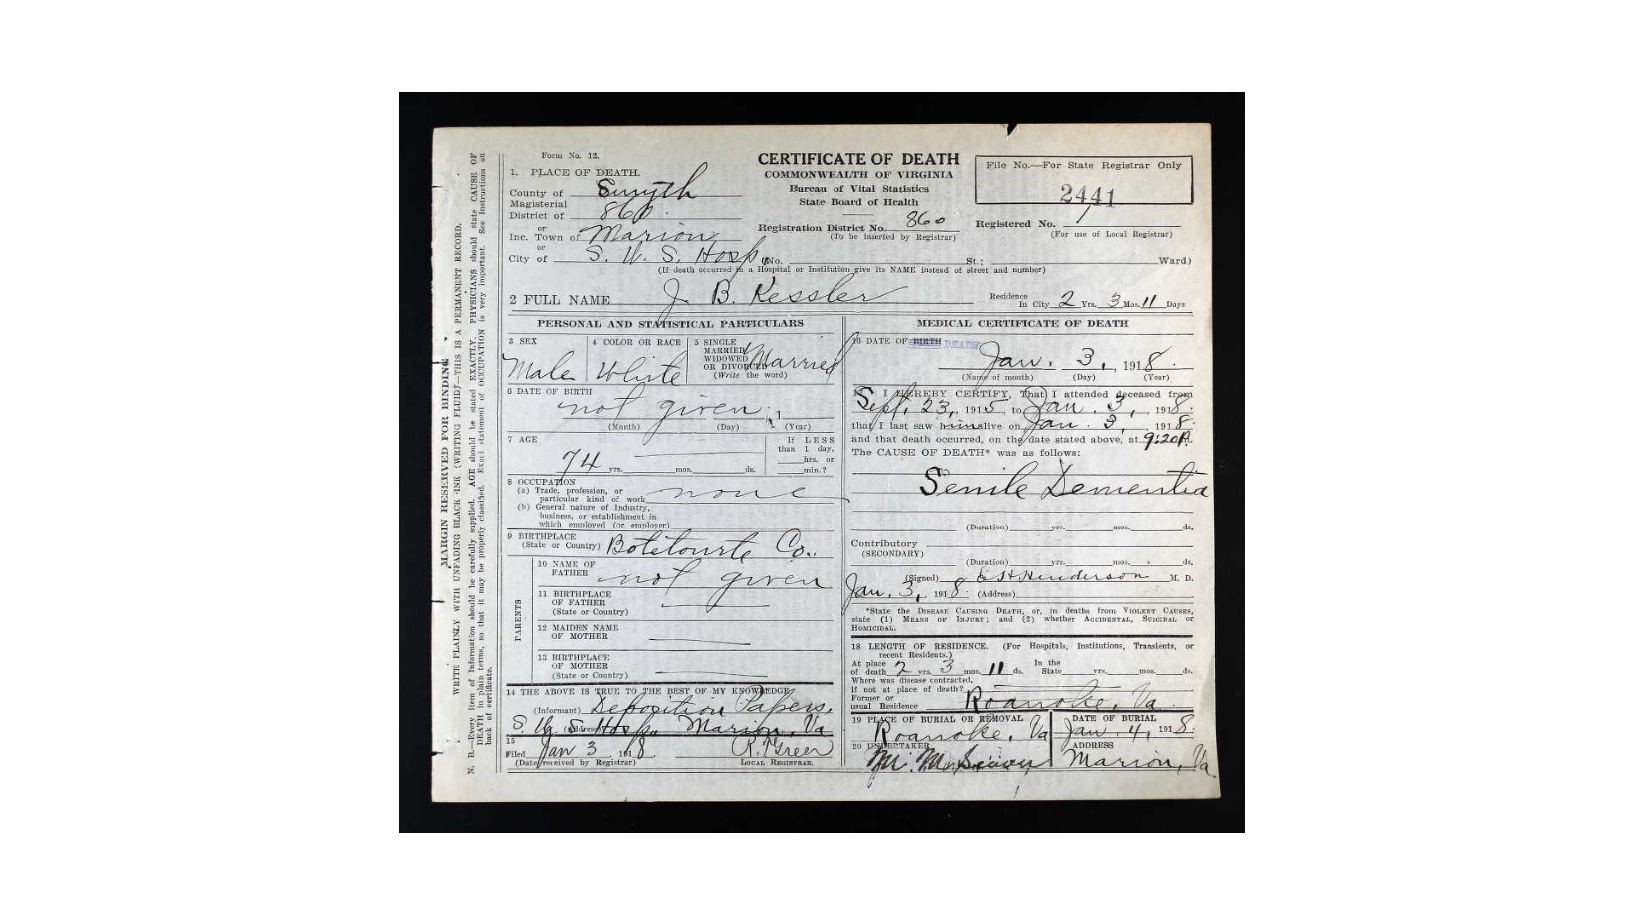 Form No. 12.
CERTIFICATE OF DEATH
COMMONWEALTH OF VIRGINIA
Bureau of Vital Statistics
State Board of Health
File No.—For State Registrar Only
2441
1. PLACE OF DEATH.
County of Smyth
Magisterial
District of 860
or
Inc. Town of Marion
or
City of S. W. S. Hosp (No. St.; Ward)
Registration District No. 860
(To be inserted by Registrar)
Registered No. 1
(For use of Local Registrar)
(If death occurred in a Hospital or Institution give its NAME instead of street and number)
2 FULL NAME J. B. Kessler
Residence
In City 2 Yrs. 3 Mos. 11 Days
PERSONAL AND STATISTICAL PARTICULARS
3 SEX
Male
4 COLOR OR RACE
White
5 SINGLE
MARRIED
WIDOWED
OR DIVORCED
(Write the word)
Married
6 DATE OF BIRTH
not given, 1
(Month) (Day) (Year)
7 AGE
74 yrs. mos. ds.
If LESS
than 1 day,
hrs. or
min.?
8 OCCUPATION
(a) Trade, profession, or
particular kind of work none
(b) General nature of Industry,
business, or establishment in
which employed (or employer)
9 BIRTHPLACE
(State or Country) Botetourte Co..
PARENTS
10 NAME OF
FATHER not given
11 BIRTHPLACE
OF FATHER
(State or Country)
12 MAIDEN NAME
OF MOTHER
13 BIRTHPLACE
OF MOTHER
(State or Country)
14 THE ABOVE IS TRUE TO THE BEST OF MY KNOWLEDGE
(Informant) Deposition Papers.
(Address) S. W. S. Hosp. Marion, Va
15
Filed Jan 3 1918
(Date received by Registrar)
LOCAL REGISTRAR.
MEDICAL CERTIFICATE OF DEATH
16 DATE OF BIRTH DEATH
Jan. 3, 1918.
(Name of month) (Day) (Year)
17 I HEREBY CERTIFY, That I attended deceased from
Sept. 23, 1915 to Jan. 3, 1918.
that I last saw him alive on Jan. 3, 1918.
and that death occurred, on the date stated above, at 9:20P.m.
The CAUSE OF DEATH* was as follows:
Senile Dementia
(Duration) yrs. mos. ds.
Contributory
(SECONDARY)
(Duration) yrs. mos. ds.
(Signed) E H Henderson M. D.
Jan. 3, 1918. (Address)
*State the DISEASE CAUSING DEATH, or, in deaths from VIOLENT CAUSES,
state (1) MEANS OF INJURY; and (2) whether ACCIDENTAL, SUICIDAL or
HOMICIDAL.
18 LENGTH OF RESIDENCE. (For Hospitals, Institutions, Transients, or
recent Residents.)
At place
of death 2 yrs. 3 mos. 11 ds. In the
State yrs. mos. ds.
Where was disease contracted,
If not at place of death?
Former or
usual Residence Roanoke, Va
19 PLACE OF BURIAL OR REMOVAL
Roanoke, Va
DATE OF BURIAL
Jan. 4, 1918.
20 UNDERTAKER
ADDRESS
Marion, Va.
MARGIN RESERVED FOR BINDING
WRITE PLAINLY WITH UNFADING BLACK INK (WRITING FLUID)—THIS IS A PERMANENT RECORD.
N. B.—Every item of information should be carefully supplied. AGE should be stated EXACTLY. PHYSICIANS should state CAUSE OF
DEATH in plain terms, so that it may be properly classified. Exact statement of OCCUPATION is very important. See Instructions on
back of certificate.